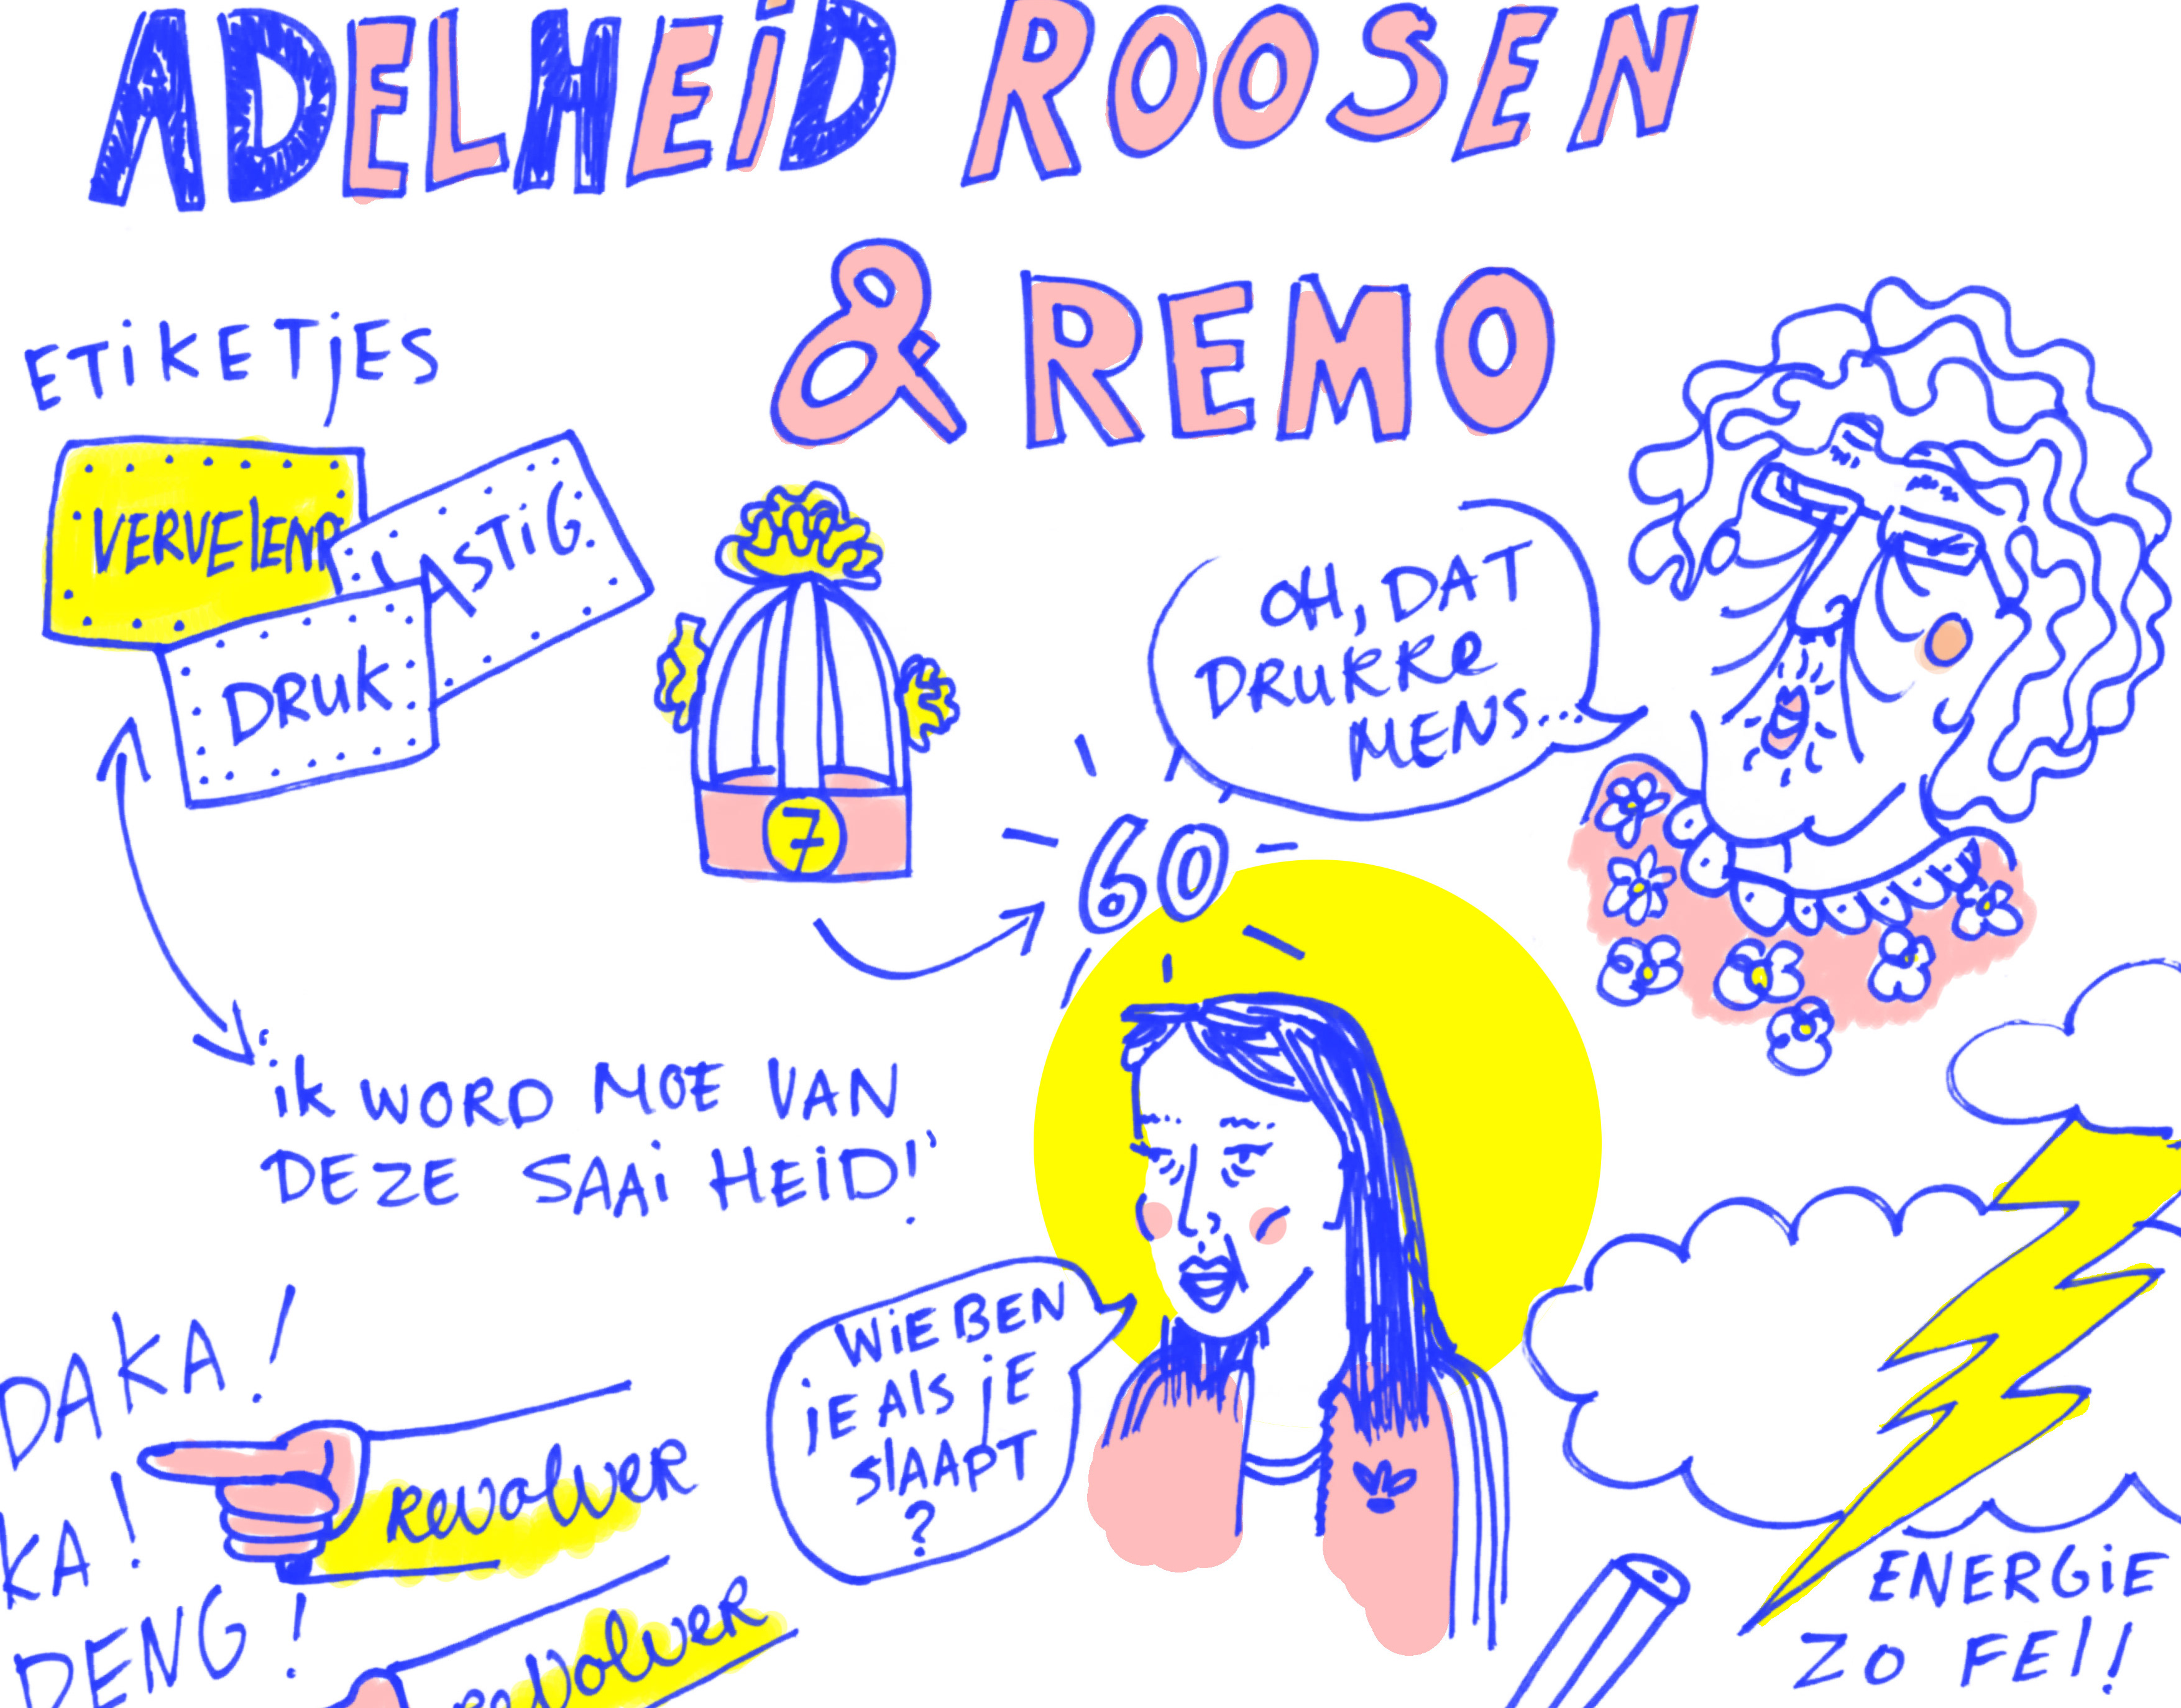 ADELHEiD ROOSEN
& REMO
ETiKETjES
VERVElEND
LASTiG.
DRUK
7
60
OH, DAT
DRUKKe
MENS...
'ik WORD MOE VAN
DEZE SAAiHEiD!'
DAKA!
KA!
DENG!
Revolver
Revolver
WiE BEN
jE Als jE
slAApT
?
ENERGiE
ZO FEl!